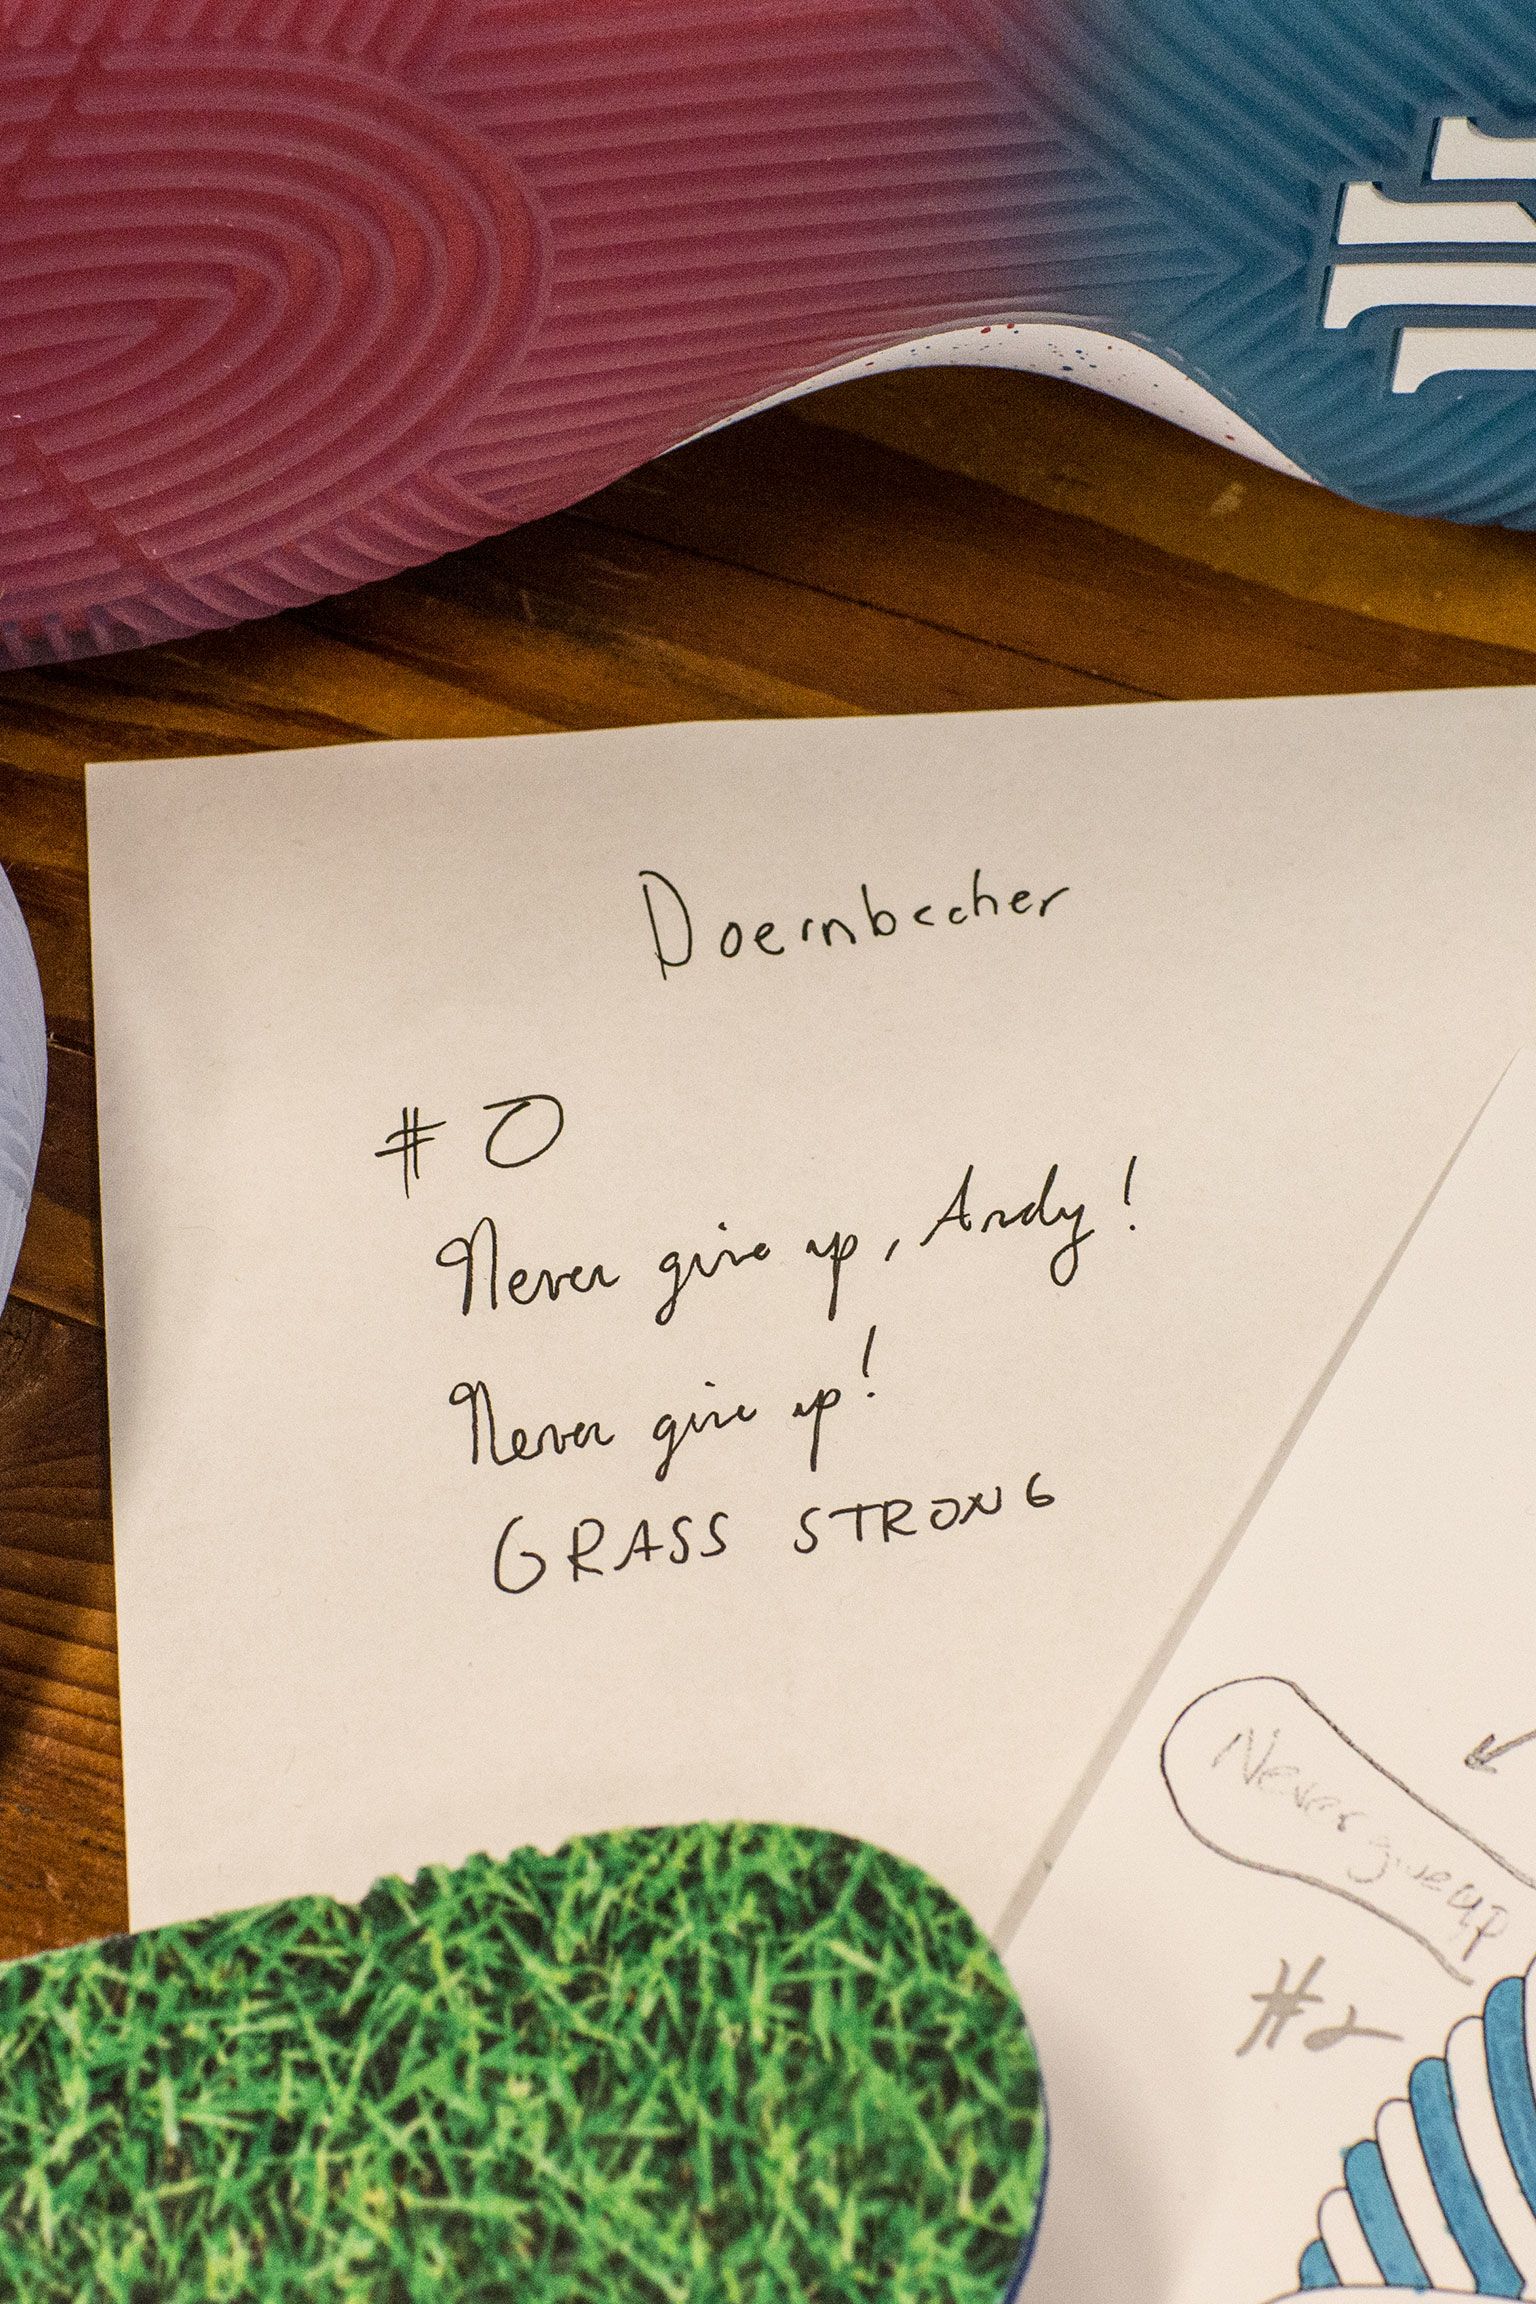 Doernbecher
# 0
Never give up, Andy!
Never give up!
GRASS STRONG
Never give up
#2